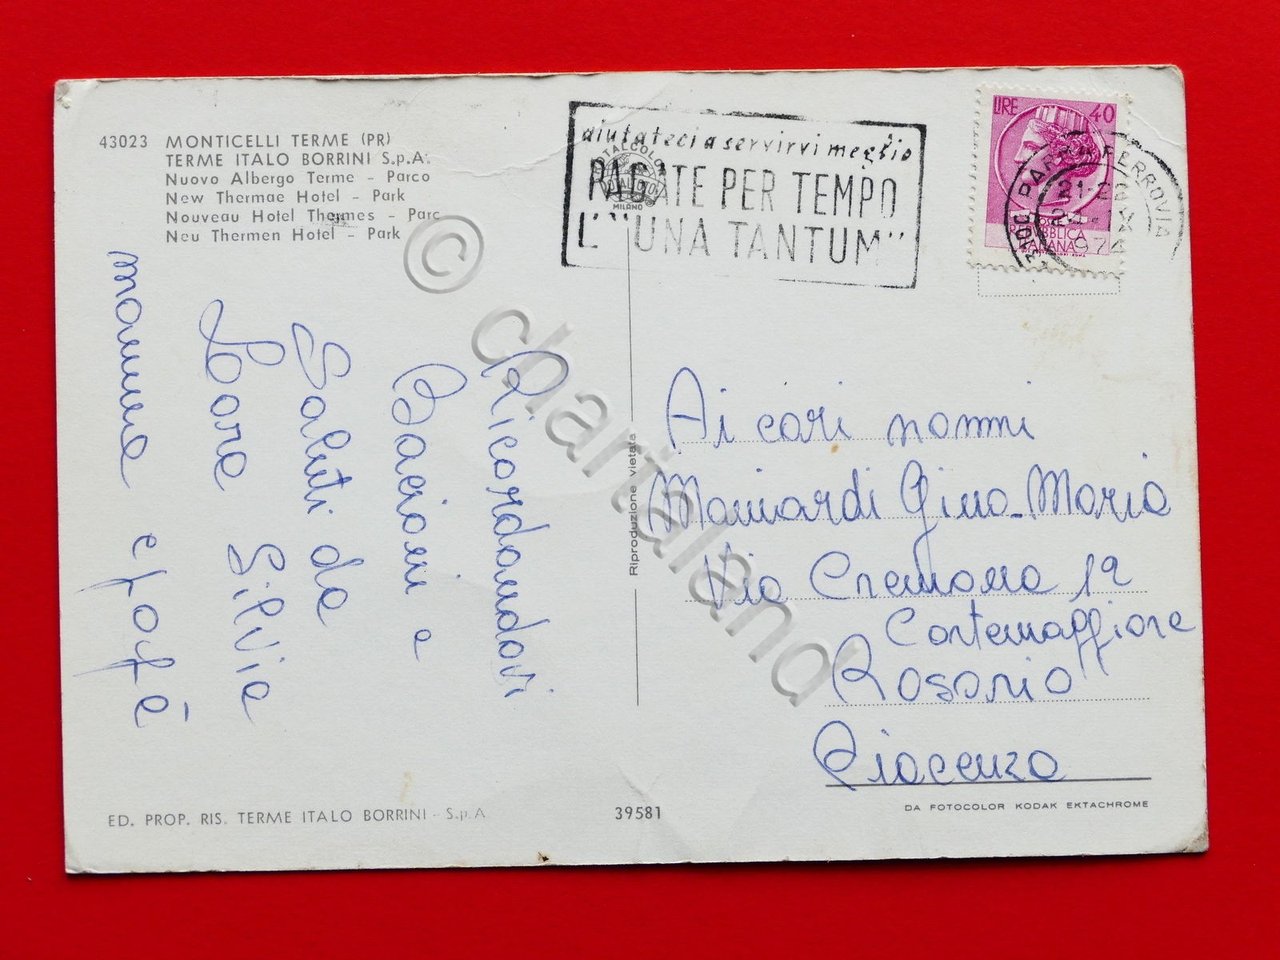 43023 MONTICELLI TERME (PR)
TERME ITALO BORRINI S.p.A.
Nuovo Albergo Terme - Parco
New Thermae Hotel - Park
Nouveau Hotel Thermes - Parc
Neu Thermen Hotel - Park
aiutateci a servirvi meglio
PAGATE PER TEMPO
L'"UNA TANTUM"
TALCOLO
MILANO
LIRE 40
REPUBBLICA
ITALIANA
PARMA FERROVIA
Ricordandovi
Bacioni e
Saluti da
Lore Silvie
mamma e papà
Riproduzione vietata
Ai cari nonni
Mainardi Gino-Maria
Via Cremona 12
Cortemaggiore
Rosario
Piacenza
ED. PROP. RIS. TERME ITALO BORRINI - S.p.A
39581
DA FOTOCOLOR KODAK EKTACHROME
© chartaland